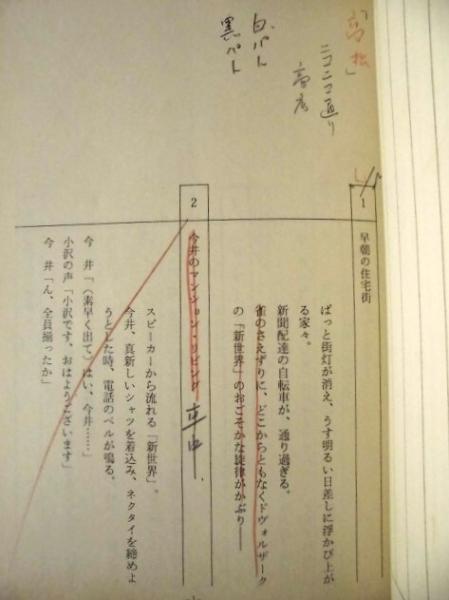 「高松」
ニコニコ通り
白バト
黒パト
1
早朝の住宅街
ぱっと街灯が消え、うす明るい日差しに浮かび上が
る家々。
新聞配達の自転車が、通り過ぎる。
雀のさえずりに、どこからともなくドヴォルザーク
の「新世界」のおごそかな旋律がかぶり──
2
今井のマンション・リビング
車中
スピーカーから流れる「新世界」。
今井、真新しいシャツを着込み、ネクタイを締めよ
うとした時、電話のベルが鳴る。
今　井「（素早く出て）はい、今井……」
小沢の声「小沢です、おはようございます」
今　井「ん、全員揃ったか」